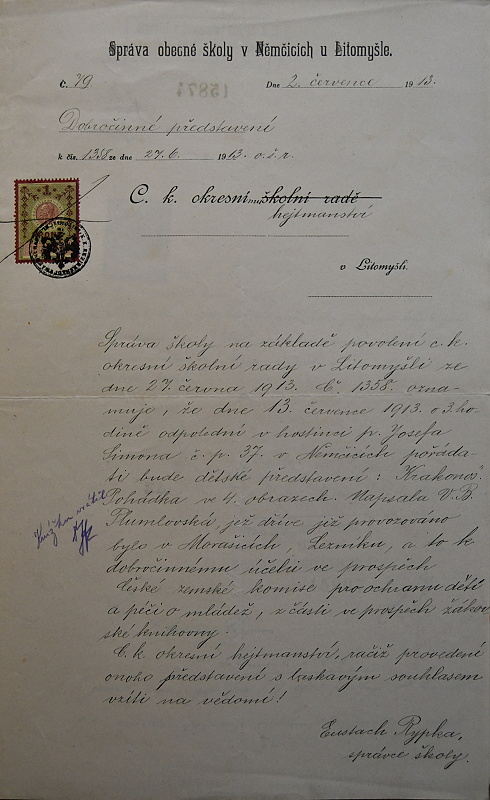 Správa obecné školy v Němčicích u Litomyšle.
Č. 79
15874
Dne 2. července 1913.
Dobročinné představení
k čís. 1358 ze dne 27.6. 1913. o.š.r.
C. k. okresní školní radě
hejtmanství
v Litomyšli.
Správa školy na základě povolení c. k.
okresní školní rady v Litomyšli ze
dne 27. června 1913. Č. 1358. ozna-
muje, že dne 13. července 1913. o 3 ho-
dině odpolední v hostinci p. Josefa
Šimona č. p. 37. v Němčicích pořáda-
ti bude dětské představení: "Krakonoš"
Pohádka ve 4. obrazech. Napsala V. B.
Plumlovská, jež dříve již provozováno
bylo v Morašicích, Lezníku, a to k
dobročinnému účelu ve prospěch
České zemské komise pro ochranu dětí
a péči o mládež, z části ve prospěch žákov-
ské knihovny.
C. k. okresní hejtmanství, račiž provedení
onoho představení s laskavým souhlasem
vzíti na vědomí!
Eustach Rypka,
správce školy.